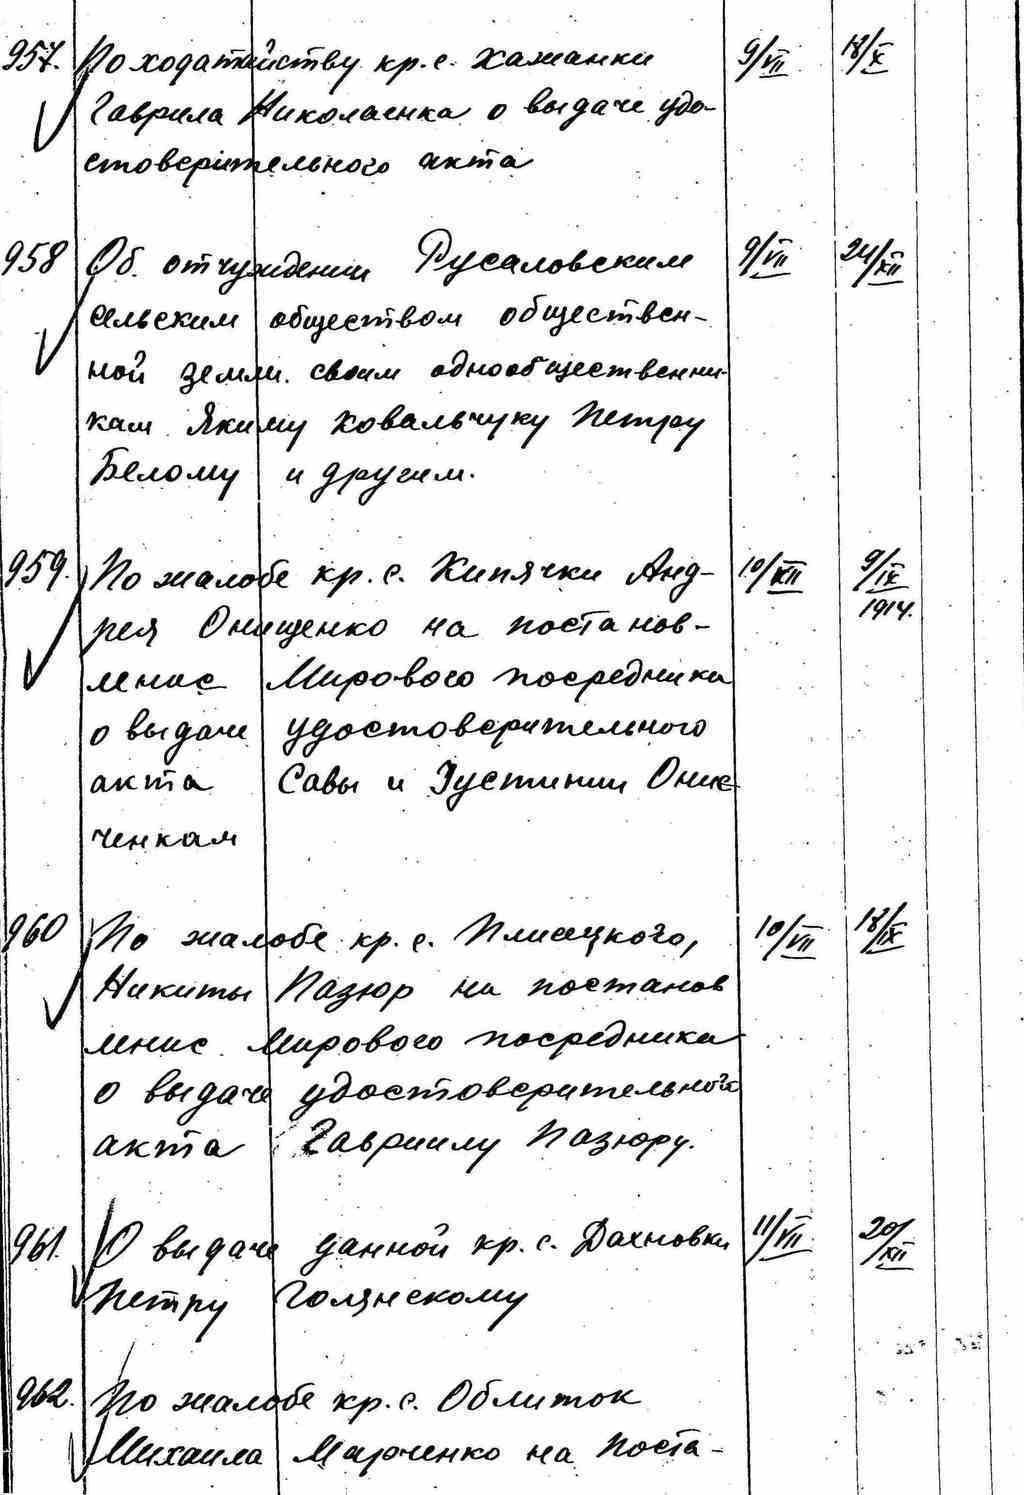 957. По ходатайству кр. с. Хажанки 9/VII 18/X
Гаврила Николаенка о выдаче удо-
стоверительного акта
958 Об. отчуждении Русаловским 9/VII 24/XII
сельским обществом обществен-
ной земли своим однообщественни-
кам Якиму Ковальчуку Петру
Белому и другим.
959. По жалобе кр. с. Кипячки Анд- 10/XII 9/IX
1914.
рея Онищенко на постанов-
ление Мирового посредника
о выдаче удостоверительного
акта Савы и Іустинии Онис-
ченкам
960 По жалобе кр. с. Плисецкого, 10/VII 18/IX
Никиты Пазюр на постанов
ление Мирового посредника
о выдаче удостоверительного
акта Гавриилу Пазюру.
961. О выдаче данной кр. с. Дахновки 11/VII 20/XII
Петру Голянскому
962. По жалобе кр. с. Облиток
Михаила Марченко на поста-